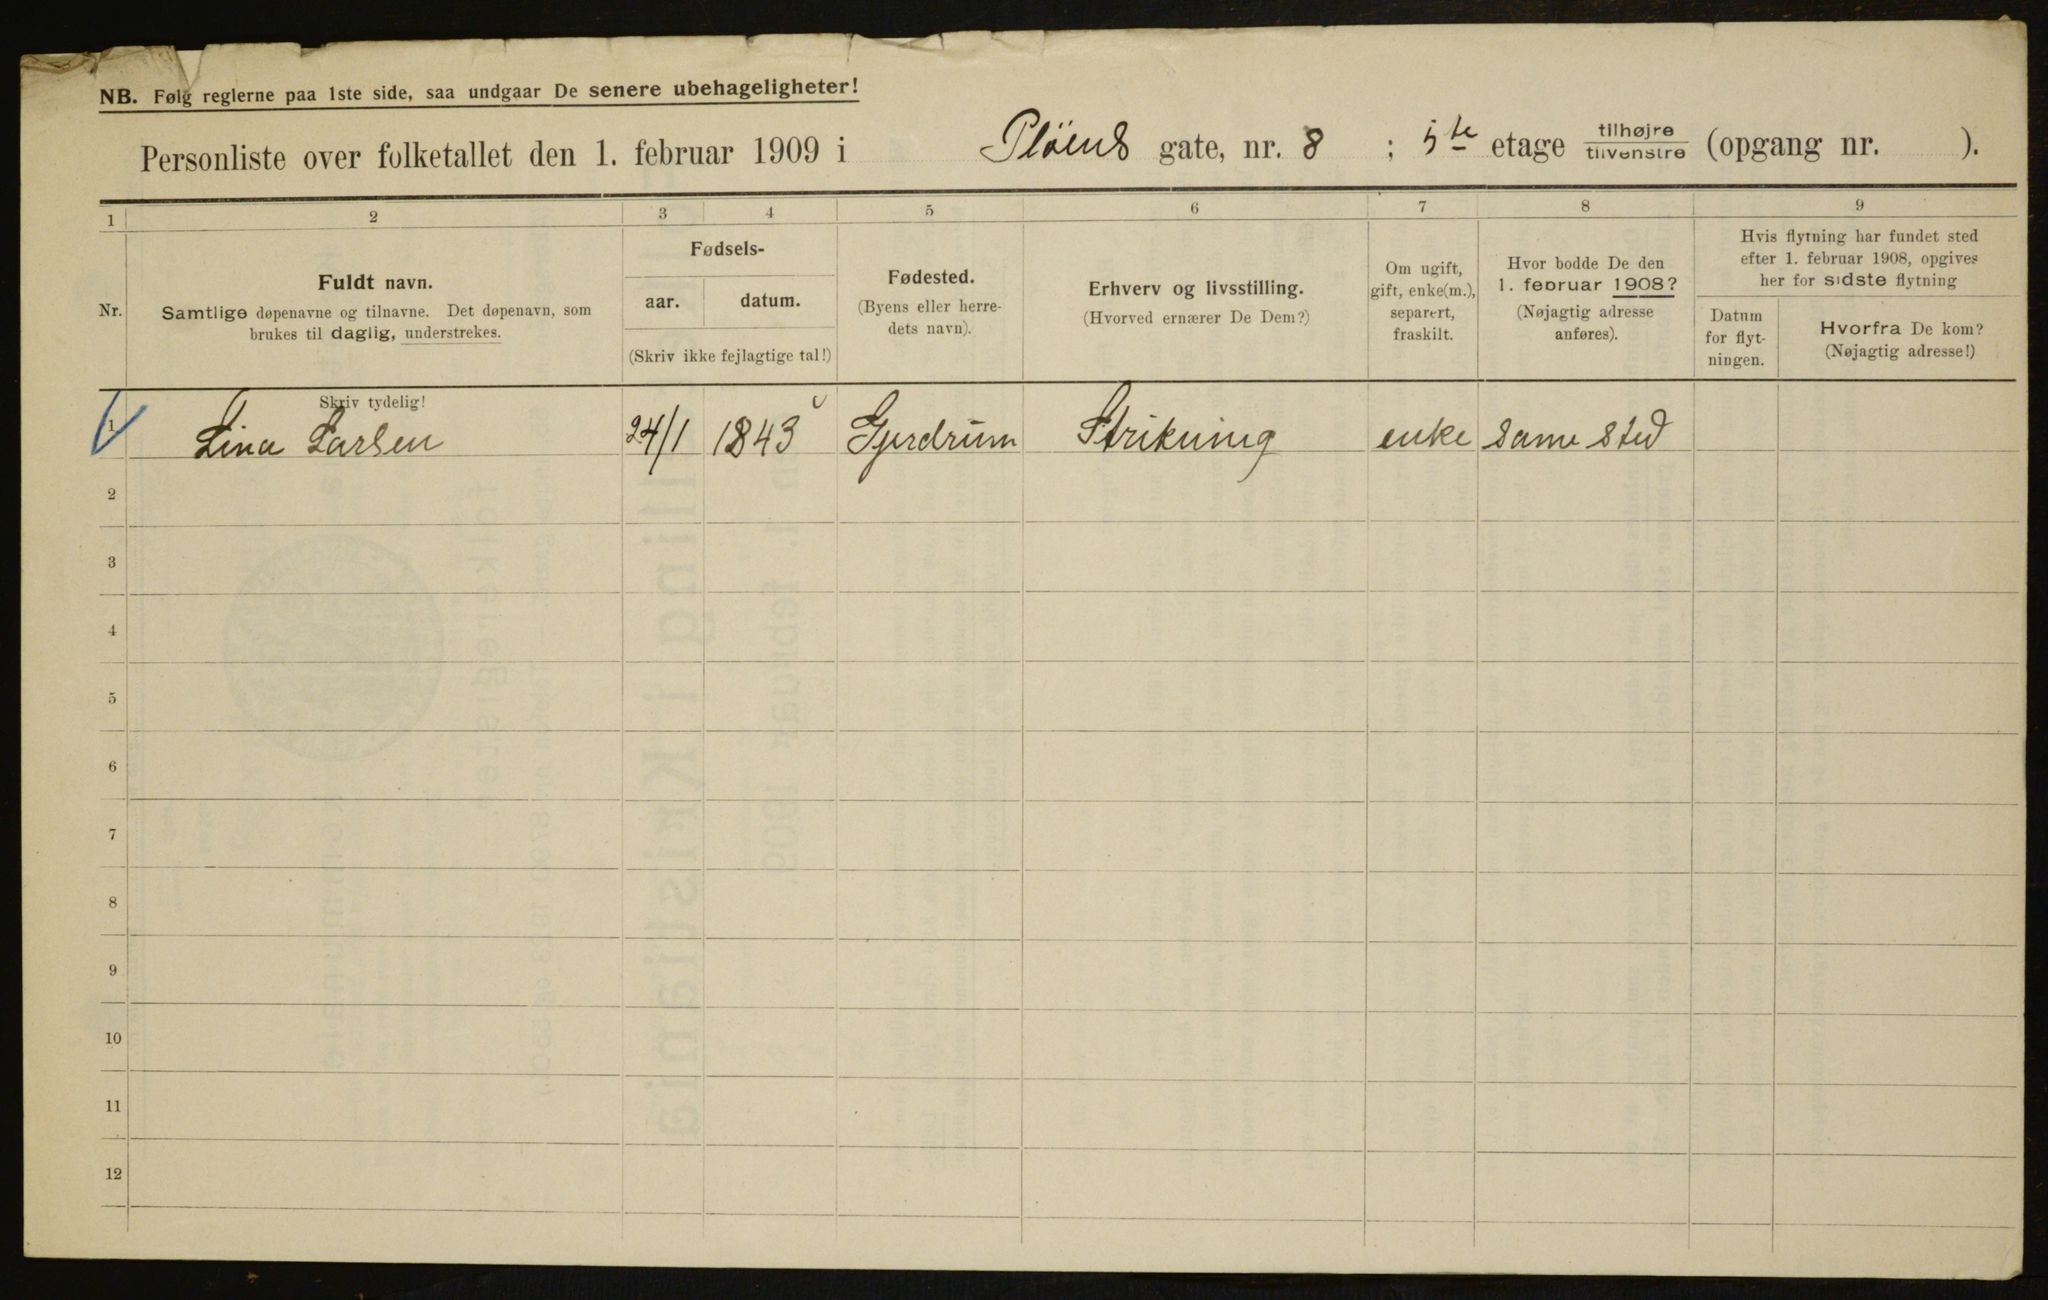 NB. Følg reglerne paa 1ste side, saa undgaar De senere ubehageligheter!
Personliste over folketallet den 1. februar 1909 i Pløens gate, nr. 8 ; 5te etage tilhøjre tilvenstre (opgang nr. ).
1 2 3 4 5 6 7 8 9
Nr.
Fuldt navn.
Samtlige døpenavne og tilnavne. Det døpenavn, som
brukes til daglig, understrekes.
Fødsels-
aar. datum.
(Skriv ikke fejlagtige tal!)
Fødested.
(Byens eller herre-
dets navn).
Erhverv og livsstilling.
(Hvorved ernærer De Dem?)
Om ugift,
gift, enke(m.),
separert,
fraskilt.
Hvor bodde De den
1. februar 1908?
(Nøjagtig adresse
anføres).
Hvis flytning har fundet sted
efter 1. februar 1908, opgives
her for sidste flytning
Datum
for flyt-
ningen.
Hvorfra De kom?
(Nøjagtig adresse!)
Skriv tydelig!
1 Lina Larsen 24/1 1843 Gjerdrum Strikning enke same sted
2
3
4
5
6
7
8
9
10
11
12